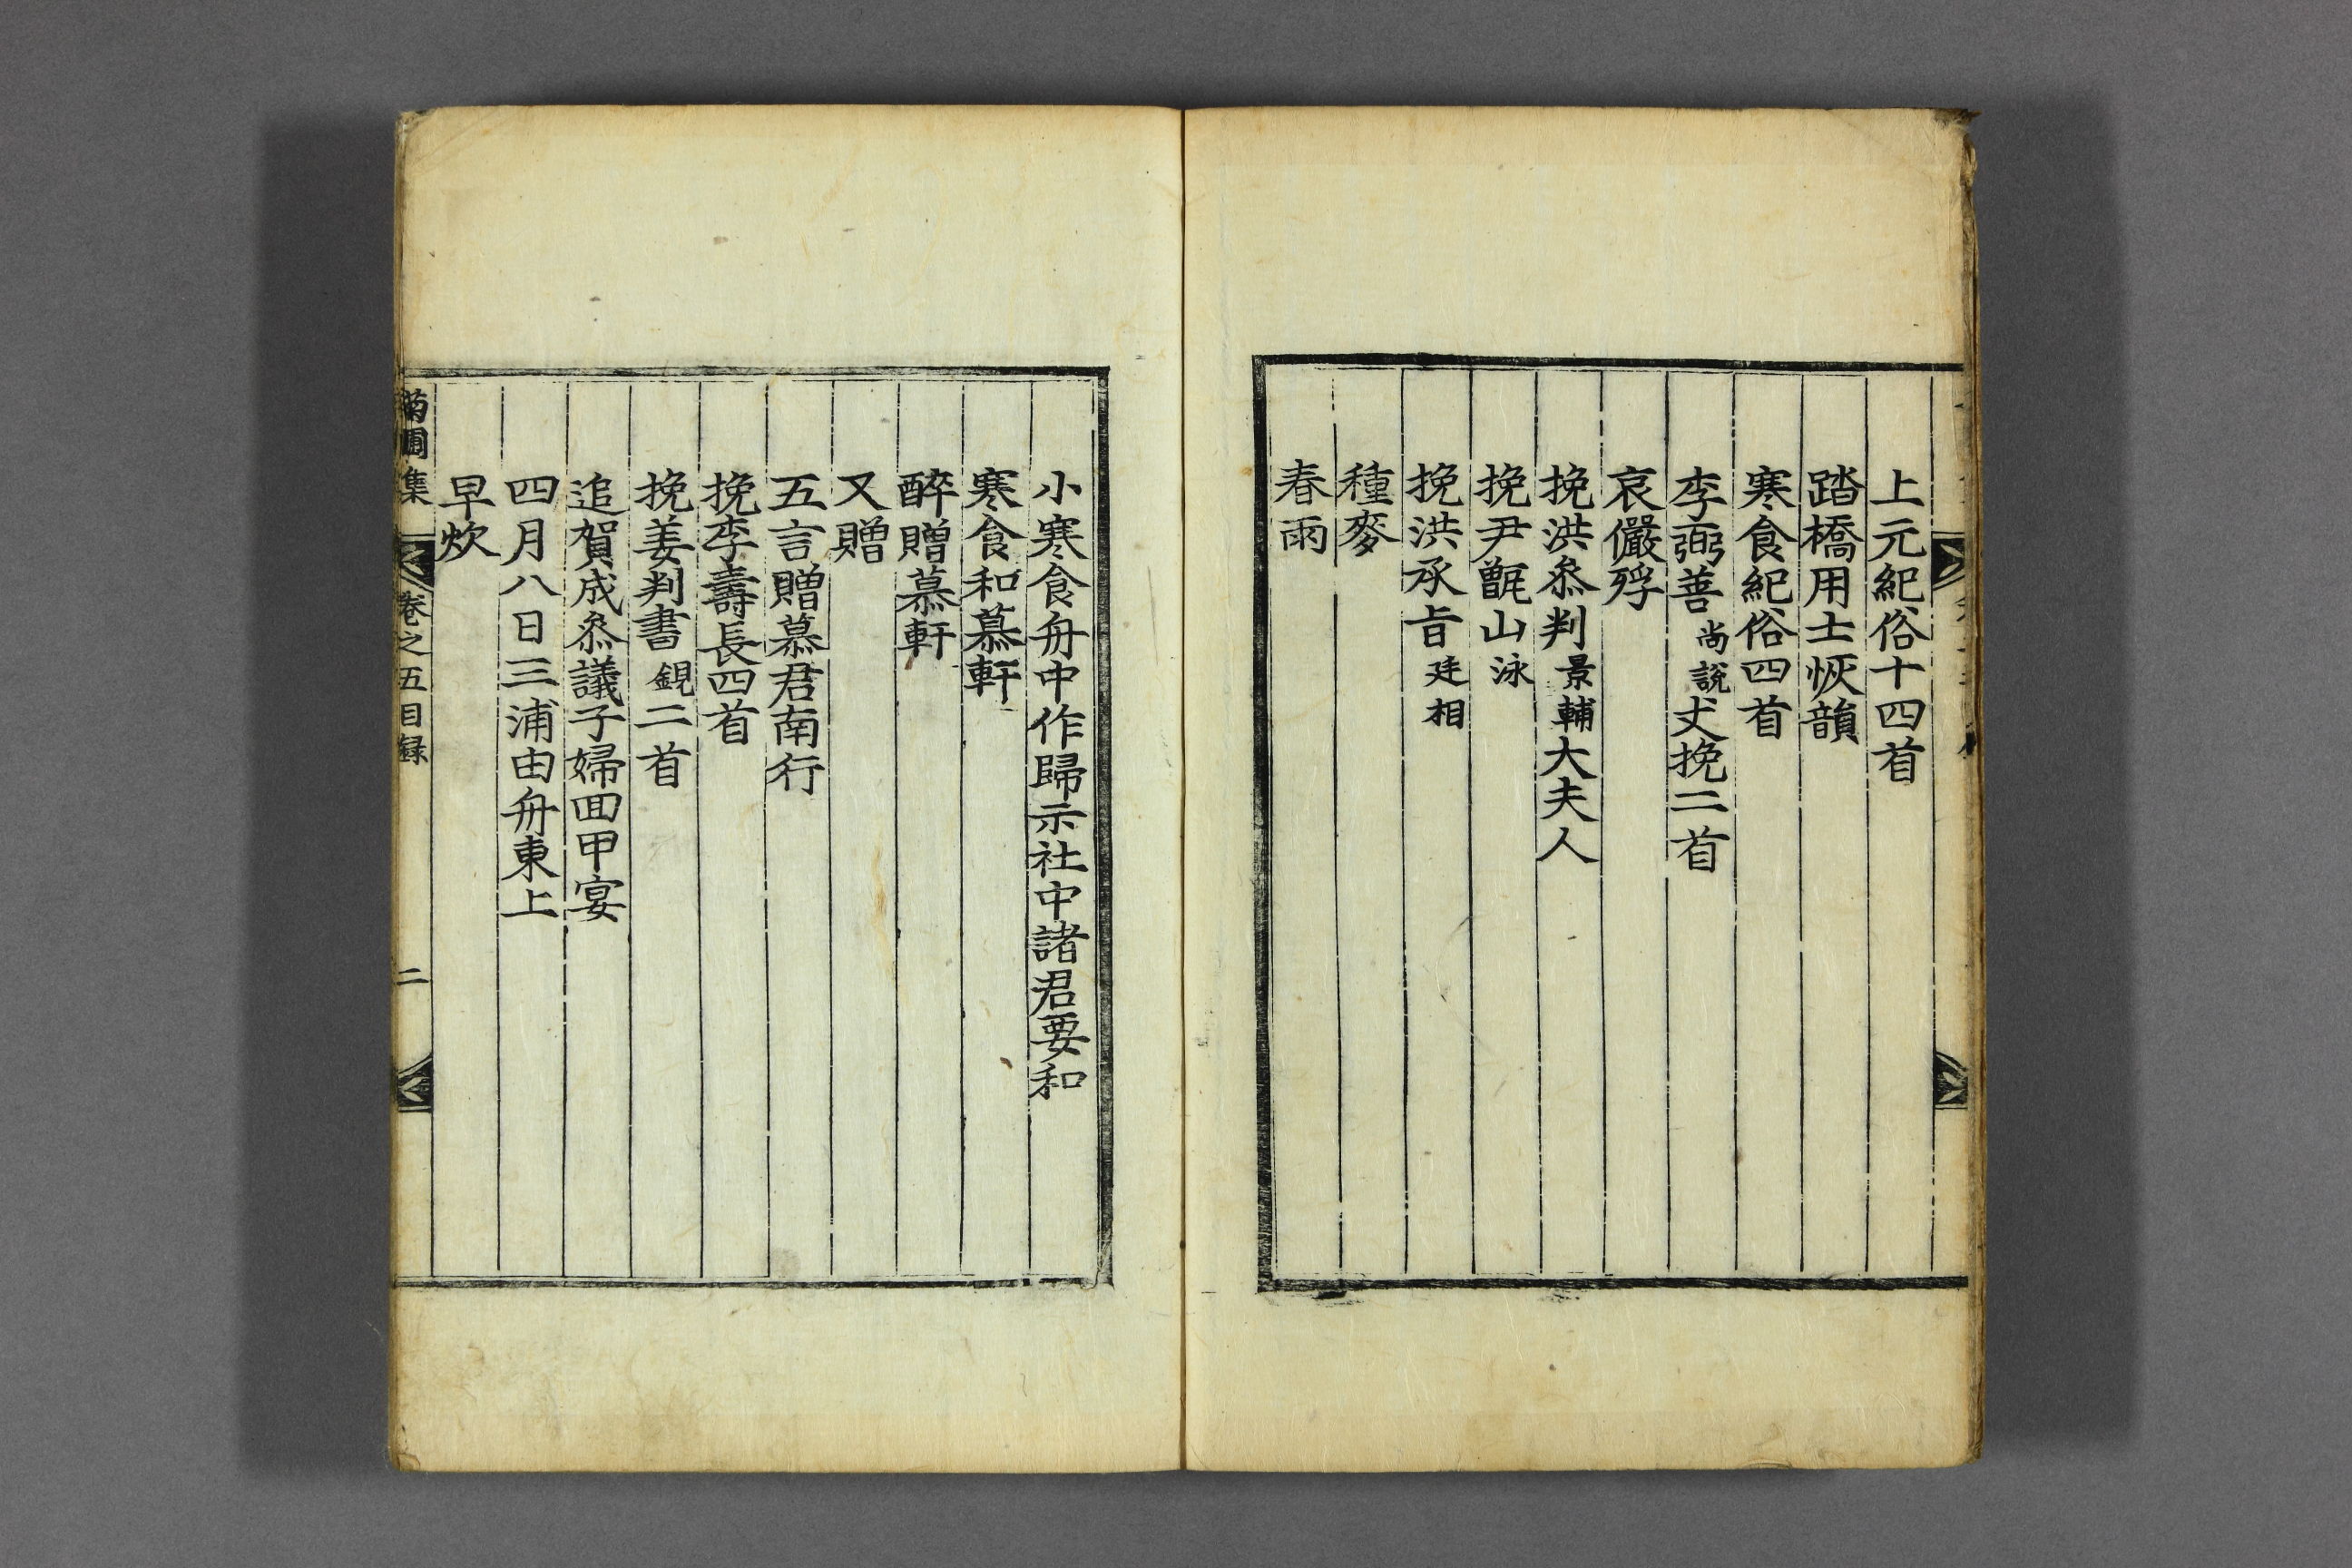 上元紀俗十四首
踏橋用士恢韻
寒食紀俗四首
李弼善尚說丈挽二首
哀儼殍
挽洪叅判景輔大夫人
挽尹甑山泳
挽洪承旨廷相
種麥
春雨
小寒食舟中作歸示社中諸君要和
寒食和慕軒
醉贈慕軒
又贈
五言贈慕君南行
挽李壽長四首
挽姜判書鋧二首
追賀成叅議子婦回甲宴
四月八日三浦由舟東上
早炊
菊圃集 卷之五目録 二